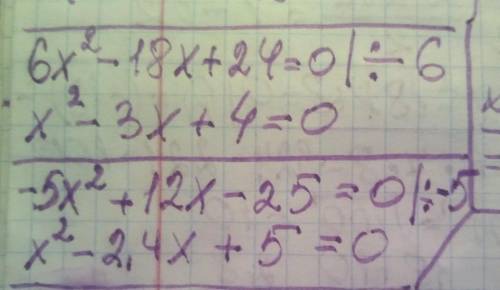 6x² - 18x + 24 = 0 | ÷ 6
x² - 3x + 4 = 0
-5x² + 12x - 25 = 0 | ÷ -5
x² - 2,4x + 5 = 0